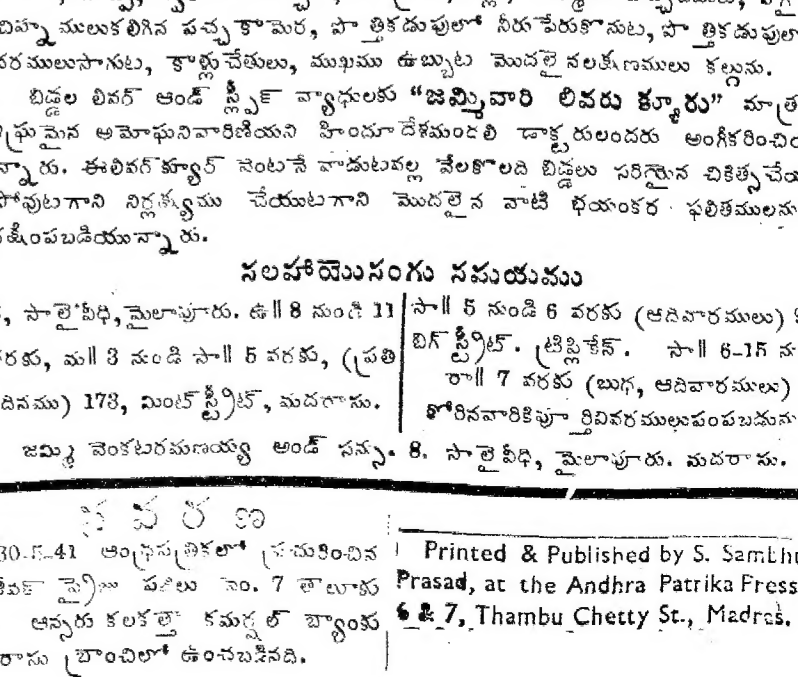 చిహ్నములుకలిగిన పచ్చకామెర, పొత్తికడుపులో నీరుపేరుకొనుట, పొత్తికడుపులో
నరములుసాగుట, కాళ్లుచేతులు, ముఖము ఉబ్బుట మొదలైనలక్షణములు కల్గును.
బిడ్డల లివర్ ఆండ్ స్ప్లీక్ వ్యాధులకు “జమ్మివారి లివరు క్యూరు” మాత్ర
అమోఘనివారిణియని హిందూదేశమందలి డాక్టరులందరు అంగీకరించి
న్నారు. ఈలివర్‌క్యూర్ వెంటనే వాడుటవల్ల వేలకొలది బిడ్డలు సరియైన చికిత్స చేయ
పోవుటగాని నిర్లక్ష్యము చేయుటగాని మొదలైన వాటి భయంకర ఫలితములను
రక్షింపబడియున్నారు.
సలహాయొసంగు సమయము
సాలైవీధి, మైలాపూరు. ఉ॥ 8 నుండి 11
వరకు, మ॥ 3 నుండి సా॥ 5 వరకు, (ప్రతి
దినము) 173, మింట్ స్ట్రీట్, మదరాసు.
సా॥ 5 నుండి 6 వరకు (ఆదివారములు)
బిగ్ స్ట్రీట్. ట్రిప్లికేన్. సా॥ 6-15 ను
రా॥ 7 వరకు (బుధ, ఆదివారములు)
కోరినవారికిపూర్తివివరములుపంపబడును
జమ్మి వెంకటరమణయ్య అండ్ సన్సు. 8. సాలైవీధి, మైలాపూరు. మదరాసు.
సవరణ
30-5-41 ఆంధ్రపత్రికలో ప్రచురించిన
ప్రైజు నెం. 7 తాలూకు
ఆన్సరు కలకత్తా కమర్షల్ బ్యాంకు
రాసు బ్రాంచిలో ఉంచబడినది.
Printed & Published by S. Sambhu
Prasad, at the Andhra Patrika Press
6 & 7, Thambu Chetty St., Madras.